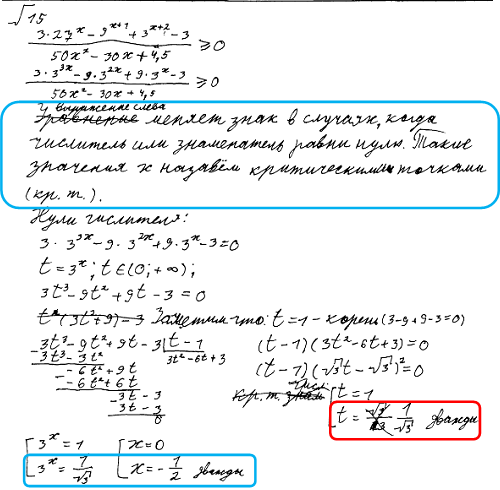 √15
(3·27^x - 9^{x+1} + 3^{x+2} - 3)/(50x² - 30x + 4,5) ≥ 0
(3·3^{3x} - 9·3^{2x} + 9·3^x - 3)/(50x² - 30x + 4,5) ≥ 0
выражение слева
меняет знак в случаях, когда
числитель или знаменатель равны нулю. Такие
значения x назовём критическими точками
(кр. т.).
Нули числителя:
3·3^{3x} - 9·3^{2x} + 9·3^x - 3 = 0
t = 3^x; t ∈ (0; +∞);
3t³ - 9t² + 9t - 3 = 0
t²(3t²+9)-3 Заметим что: t = 1 - корень (3-9+9-3=0)
3t³ - 9t² + 9t - 3 | t - 1 (t-1)(3t²-6t+3)=0
3t³ - 3t² 3t² - 6t + 3
-6t² + 9t (t-1)(√3t-√3)²=0
-6t² + 6t
3t - 3 кр. т. числ. [t = 1
3t - 3 t = 1/√3 дважды
0
[3^x = 1 [x = 0
3^x = 1/√3 x = -1/2 дважды